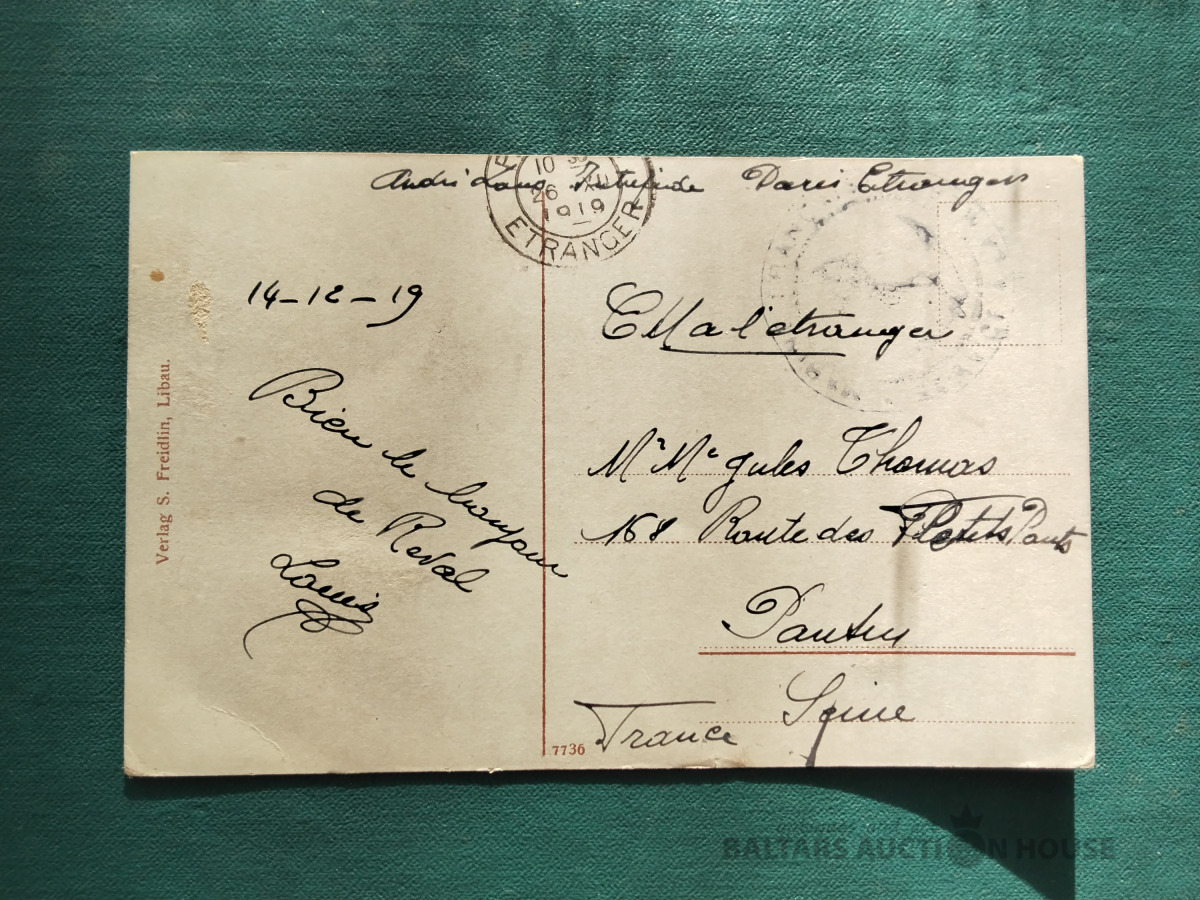 Paris Etranger
10 30
26
1919
ETRANGER
14-12-19
Bien le bonjour
de Reval
Louis
a l'etranger
Mr Me Jules Thomas
168 Route des Petits Ponts
Pantin
Seine
France
7736
Verlag S. Freidlin, Libau.
BALTARS AUCTION HOUSE